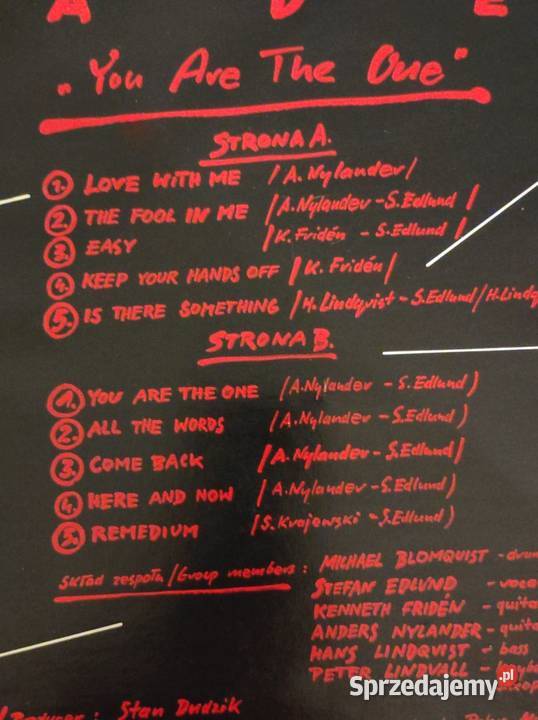 A D E
„You Are The One"
STRONA A.
1. LOVE WITH ME /A. Nylander/
2. THE FOOL IN ME /A. Nylander - S. Edlund/
3. EASY /K. Fridén - S. Edlund/
4. KEEP YOUR HANDS OFF /K. Fridén/
5. IS THERE SOMETHING /H. Lindqvist - S. Edlund/H. Lindq
STRONA B.
1. YOU ARE THE ONE /A. Nylander - S. Edlund)
2. ALL THE WORDS (A. Nylander - S. Edlund)
3. COME BACK /A. Nylander - S. Edlund/
4. HERE AND NOW /A. Nylander - S. Edlund)
5. REMEDIUM /S. Krajewski - S. Edlund)
Skład zespołu/Group members: MICHAEL BLOMQUIST - dru
STEFAN EDLUND - voca
KENNETH FRIDÉN - guita
ANDERS NYLANDER - guita
HANS LINDQVIST - bass
PETER LINDVALL - keyb
Sprzedajemy.pl
Producer: Stan Dudzik